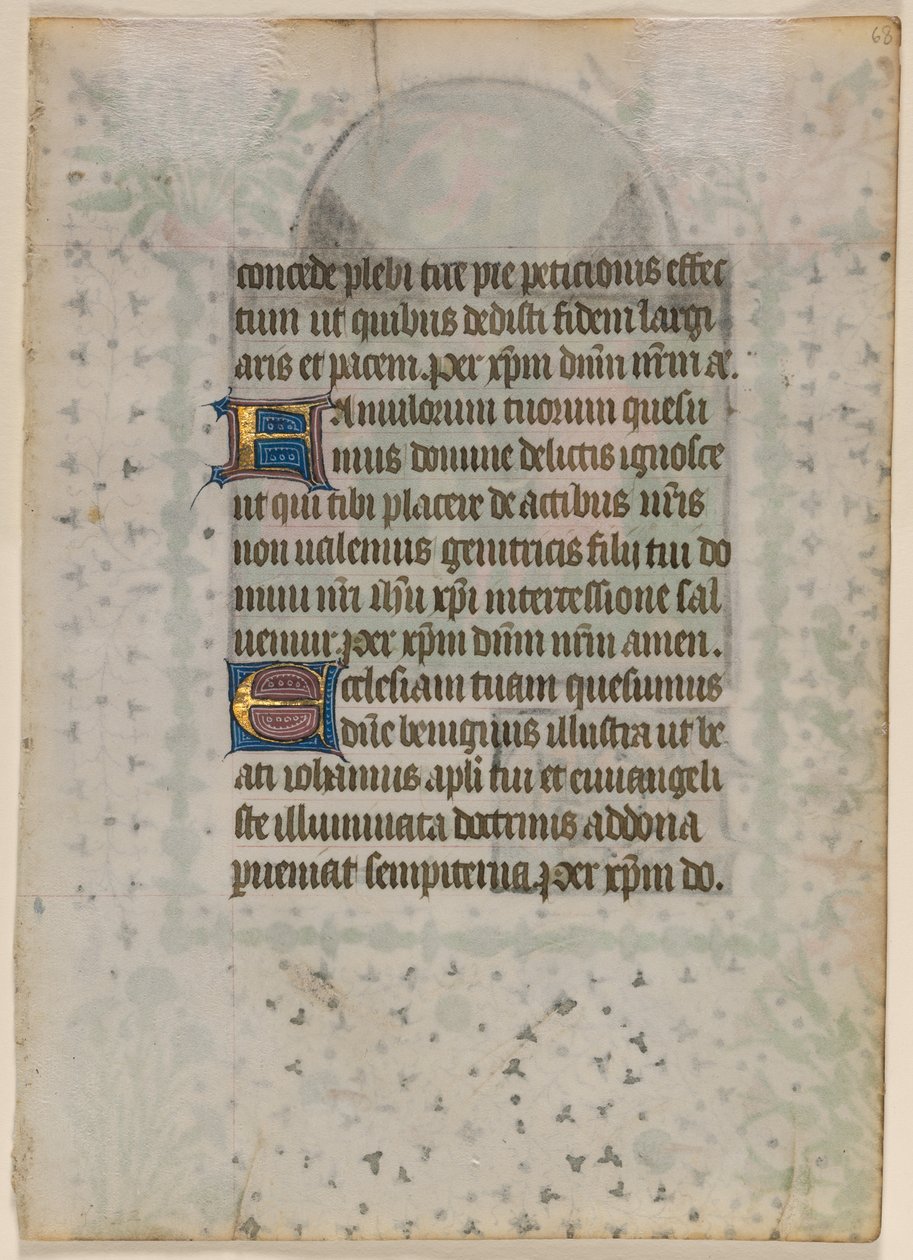 68
concede plebi tue pie peticionis effec
tum ut quibus dedisti fidem largi
aris et pacem. Per xp̄m dn̄m nr̄m ae.
Famulorum tuorum quesu
mus domine delictis ignosce
ut qui tibi placere de actibus nr̄is
non ualemus genitricis filij tui do
mini nr̄i ihū xp̄i intercessione sal
uemur. Per xp̄m dn̄m nr̄m amen.
Ecclesiam tuam quesumus
dn̄e benignus illustra ut be
ati iohannis apl̄i tui et euuangeli
ste illuminata doctrinis ad dona
ꝑueniat sempiterna. Per xp̄m do.